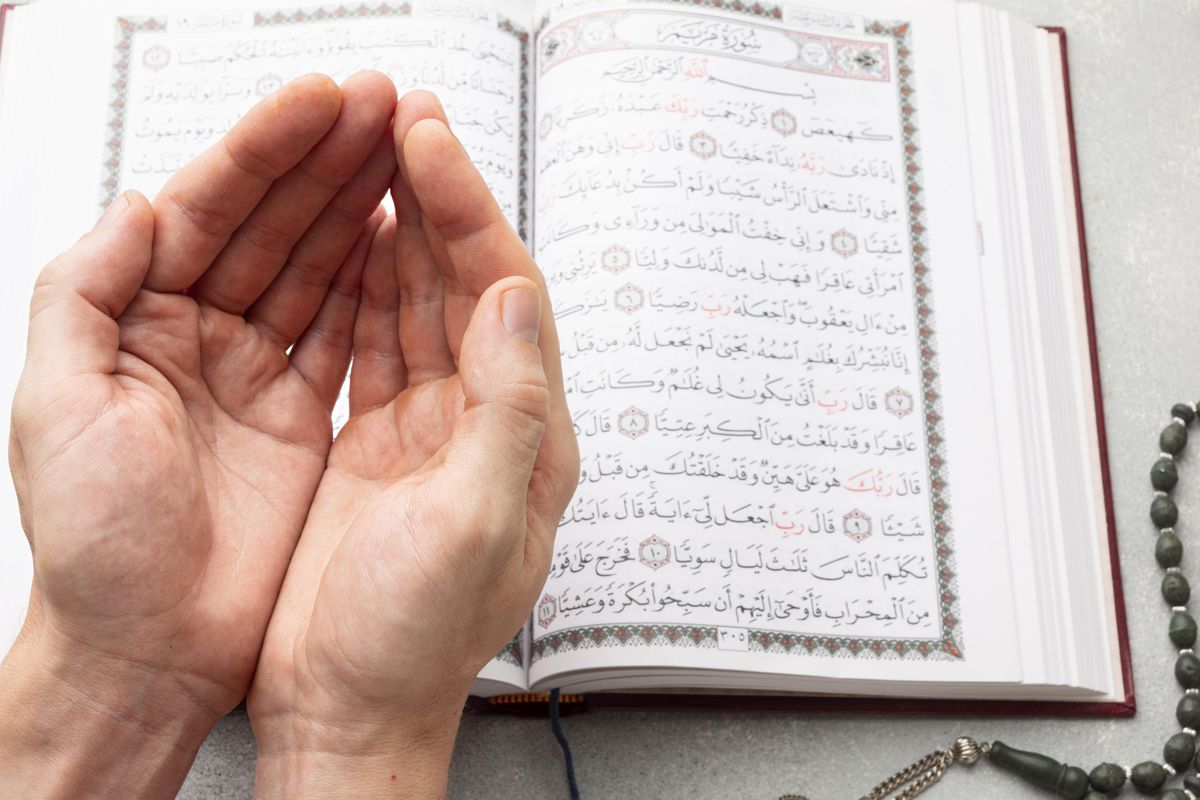 سُورَةُ مَرْيَمَ
بِسْمِ ٱللَّهِ ٱلرَّحْمَٰنِ ٱلرَّحِيمِ
كٓهيعٓصٓ ١ ذِكْرُ رَحْمَتِ رَبِّكَ عَبْدَهُۥ زَكَرِيَّآ
إِذْ نَادَىٰ رَبَّهُۥ نِدَآءً خَفِيًّا ٣ قَالَ رَبِّ إِنِّى وَهَنَ
مِنِّى وَٱشْتَعَلَ ٱلرَّأْسُ شَيْبًا وَلَمْ أَكُنۢ بِدُعَآئِكَ رَبِّ
شَقِيًّا ٤ وَإِنِّى خِفْتُ ٱلْمَوَٰلِىَ مِن وَرَآءِى وَكَانَتِ
ٱمْرَأَتِى عَاقِرًا فَهَبْ لِى مِن لَّدُنكَ وَلِيًّا ٥ يَرِثُنِى
مِنْ ءَالِ يَعْقُوبَ وَٱجْعَلْهُ رَبِّ رَضِيًّا ٦
إِنَّا نُبَشِّرُكَ بِغُلَٰمٍ ٱسْمُهُۥ يَحْيَىٰ لَمْ نَجْعَل لَّهُۥ مِن قَبْلُ
٧ قَالَ رَبِّ أَنَّىٰ يَكُونُ لِى غُلَٰمٌ وَكَانَتِ
عَاقِرًا وَقَدْ بَلَغْتُ مِنَ ٱلْكِبَرِ عِتِيًّا ٨ قَالَ
قَالَ رَبُّكَ هُوَ عَلَىَّ هَيِّنٌ وَقَدْ خَلَقْتُكَ مِن قَبْلُ
شَيْـًٔا ٩ قَالَ رَبِّ ٱجْعَل لِّىٓ ءَايَةً قَالَ ءَايَتُكَ
تُكَلِّمَ ٱلنَّاسَ ثَلَٰثَ لَيَالٍ سَوِيًّا ١٠ فَخَرَجَ عَلَىٰ
مِنَ ٱلْمِحْرَابِ فَأَوْحَىٰٓ إِلَيْهِمْ أَن سَبِّحُوا۟ بُكْرَةً وَعَشِيًّا ١١
٣٠٥
يَٰيَحْيَىٰ خُذِ ٱلْكِتَٰبَ بِقُوَّةٍ وَءَاتَيْنَٰهُ ٱلْحُكْمَ صَبِيًّا ١٢
وَحَنَانًا مِّن لَّدُنَّا ١٣ وَبَرًّۢا بِوَٰلِدَيْهِ وَلَمْ
يَكُن وَيَوْمَ يَمُوتُ
وَيَوْمَ